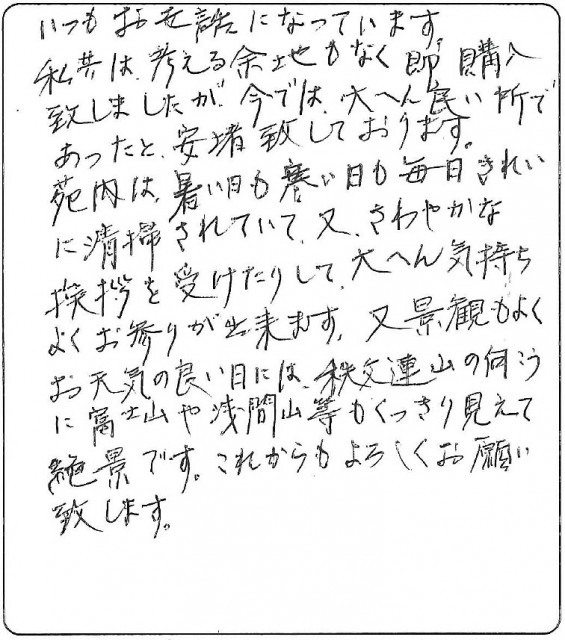 いつもお世話になっています。
私共は、考える余地もなく即購入
致しましたが、今では、大へん良い所で
あったと、安堵致しております。
苑内は、暑い日も寒い日も毎日きれい
に清掃されていて、又、さわやかな
挨拶を受けたりして、大へん気持ち
よくお参りが出来ます。又景観もよく
お天気の良い日には、秩父連山の向こう
に富士山や浅間山等もくっきり見えて
絶景です。これからもよろしくお願い
致します。